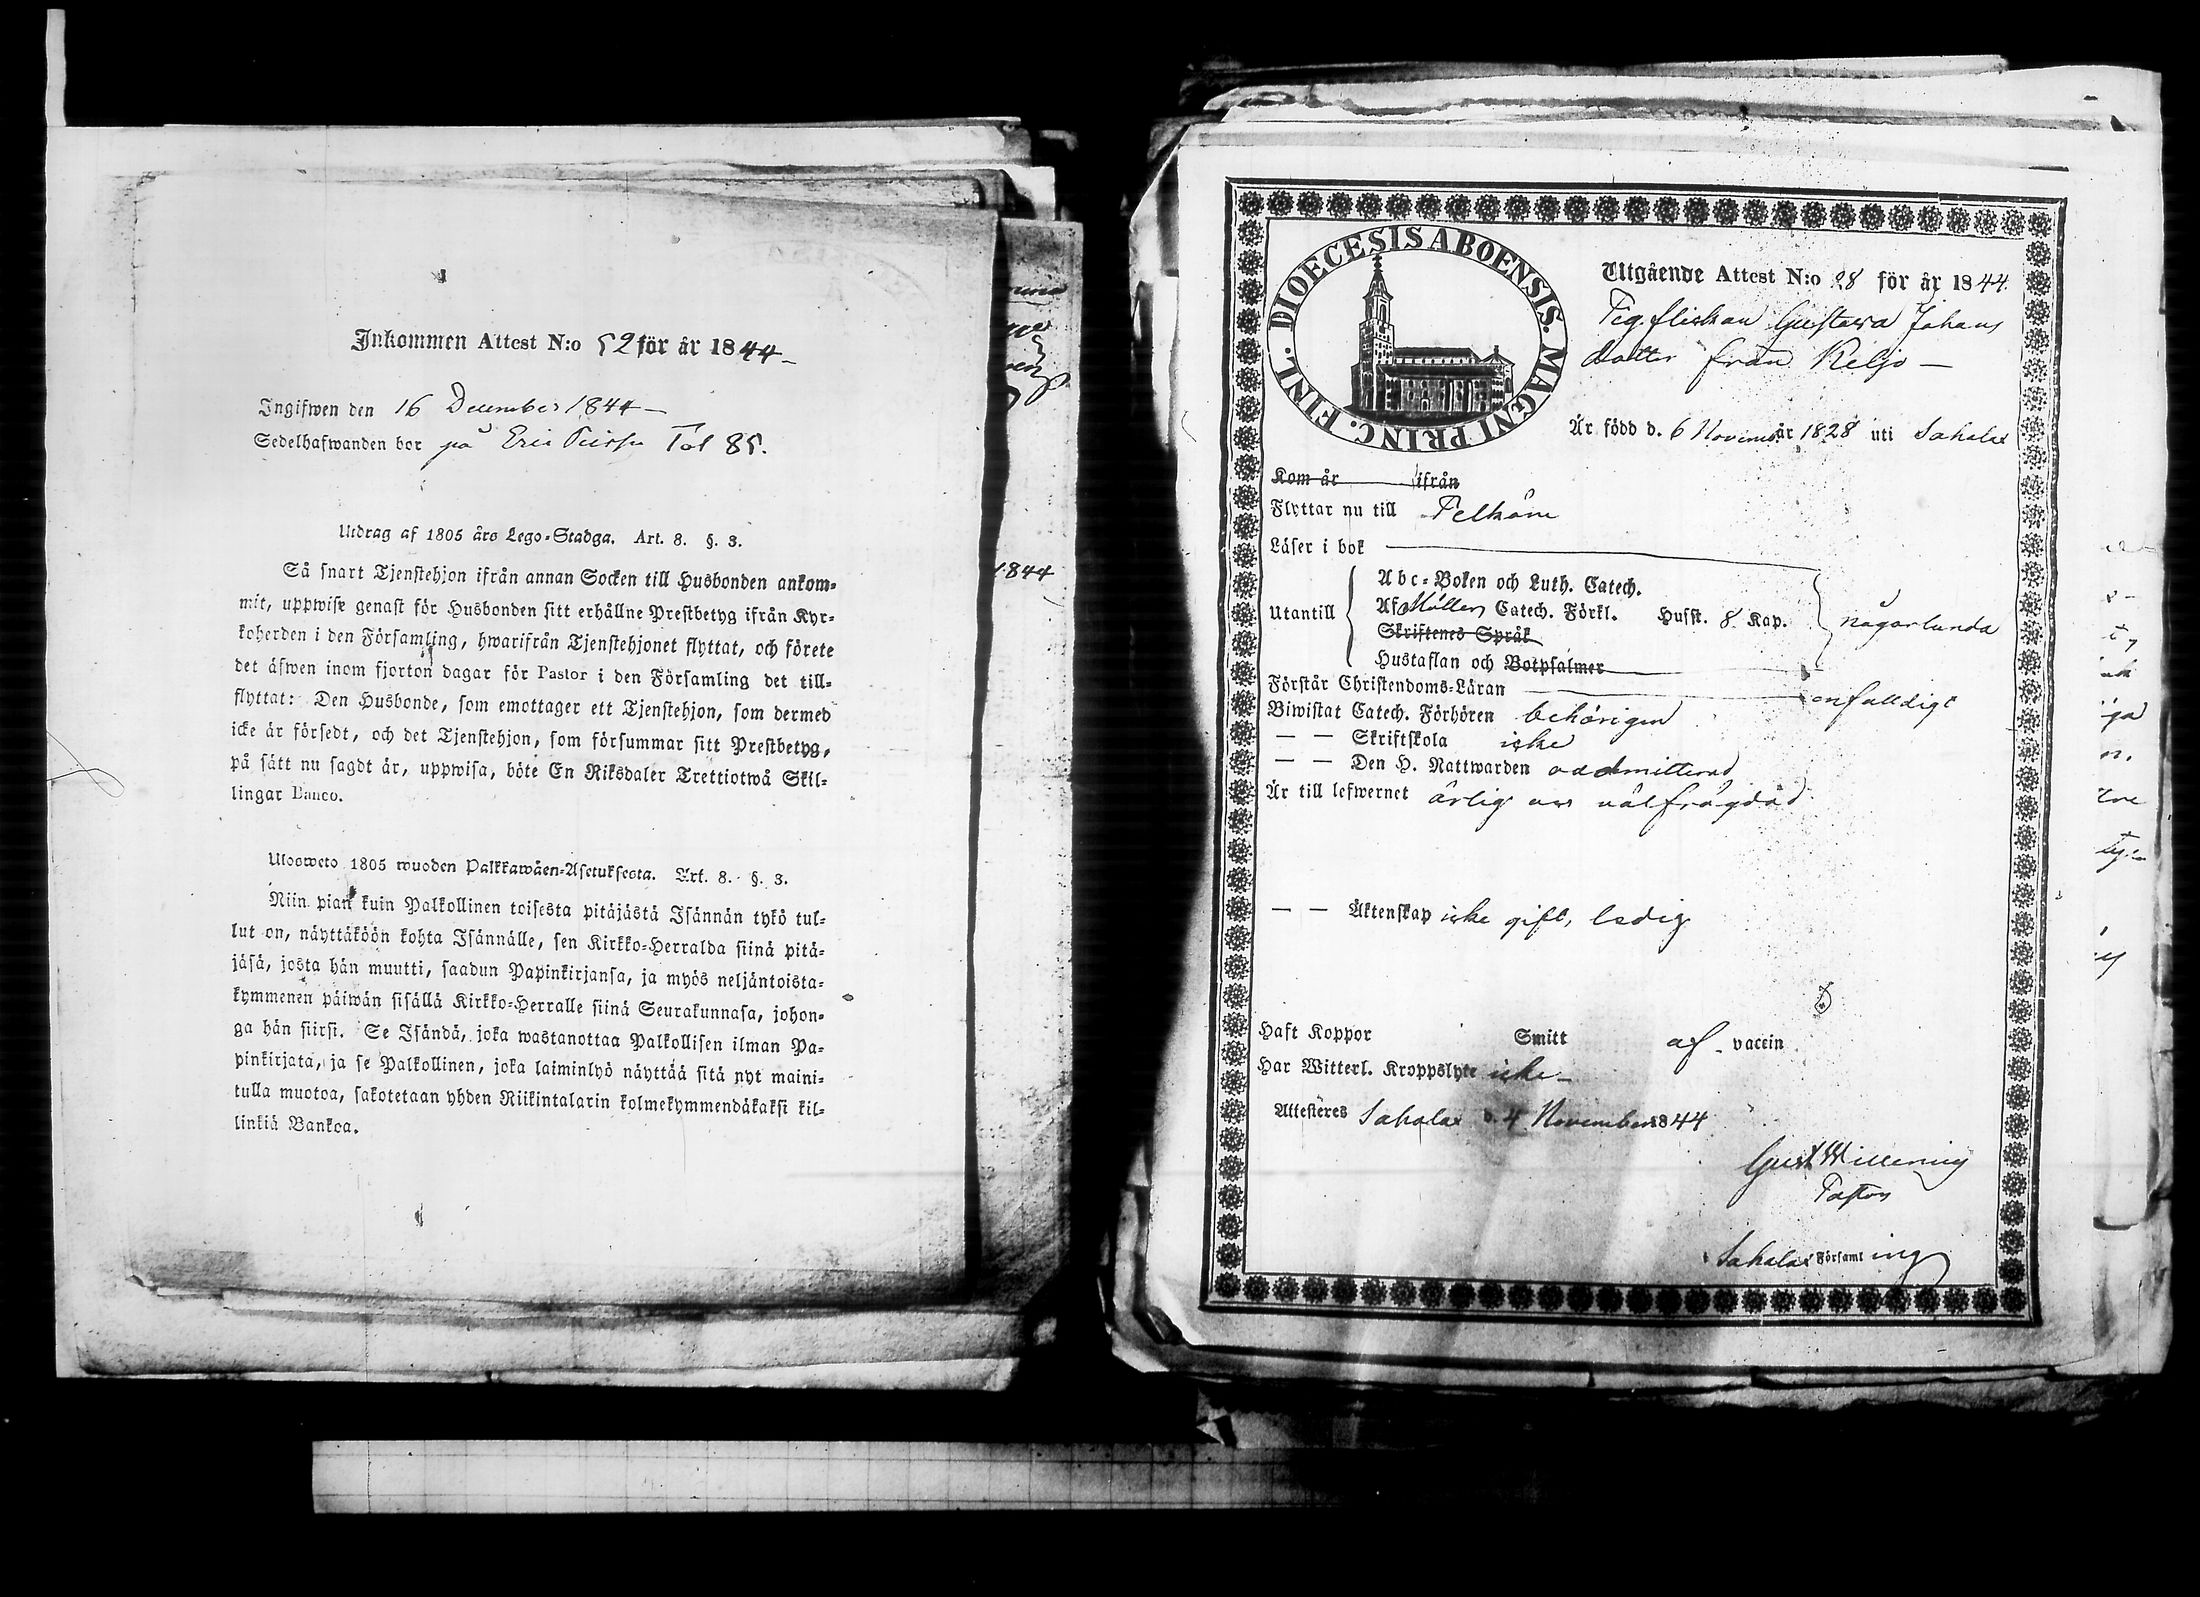 Inkommen Attest N:o 52 för år 1844
Ingifwen den 16 December 1844
Sedelhafwanden bor på Eric Tol 85.
Utdrag af 1805 års Lego-Stadga. Art. 8. §. 3.
Så snart Tjenstehjon ifrån annan Socken till Husbonden ankom-
mit, uppwise genast för Husbonden sitt erhållne Prestbetyg ifrån Kyr-
koherden i den Församling, hwarifrån Tjenstehjonet flyttat, och förete
det äfwen inom fjorton dagar för Pastor i den Församling det till-
flyttat: Den Husbonde, som emottager ett Tjenstehjon, som dermed
icke är försedt, och det Tjenstehjon, som försummar sitt Prestbetyg,
på sätt nu sagdt är, uppwisa, böte En Riksdaler Trettiotwå Skil-
lingar Banco.
Ulosweto 1805 wuoden Palkkawäen-Asetuksesta. Art. 8. §. 3.
Niin pian kuin Palkollinen toisesta pitäjästä Isännän tykö tul-
lut on, näyttäköön kohta Isännälle, sen Kirkko-Herralda siinä pitä-
jäsä, josta hän muutti, saadun Papinkirjansa, ja myös neljäntoista-
kymmenen päiwän sisällä Kirkko-Herralle siinä Seurakunnasa, johon-
ga hän siirsi. Se Isändä, joka wastanottaa Palkollisen ilman Pa-
pinkirjata, ja se Palkollinen, joka laiminlyö näyttää sitä nyt maini-
tulla muotoa, sakotetaan yhden Riikintalarin kolmekymmendäkaksi kil-
linkiä Bankoa.
1844
DIOECESIS ABOENSIS. MAGNI PRINC. FINL.
Utgående Attest N:o 28 för år 1844
Pig.flickan Gustava Johans
dotter från Keljo
Är född d. 6 Novemb. år 1828 uti Sahalax
Kom år ifrån
Flyttar nu till Pelkäne
Läser i bok
Abc-Boken och Luth. Catech.
Utantill Af Möllers Catech. Förkl. Husst. 8 Kap. någorlunda
Skriftenes Språk
Hustaflan och Botpsalmer
Förstår Christendoms-Läran enfalldigt
Biwistat Catech. Förhören behörigen
— — Skriftskola icke
— — Den H. Nattwarden oadmitterad
Är till lefwernet ärlig och välfrägdad
— — Äktenskap icke gift, ledig
Haft Koppor Smitt af vaccin
Har Witterl. Kroppslyte icke
Attesteres Sahalax d. 4 November 1844
Gust Willenius
Pastor
Sahalax Församling